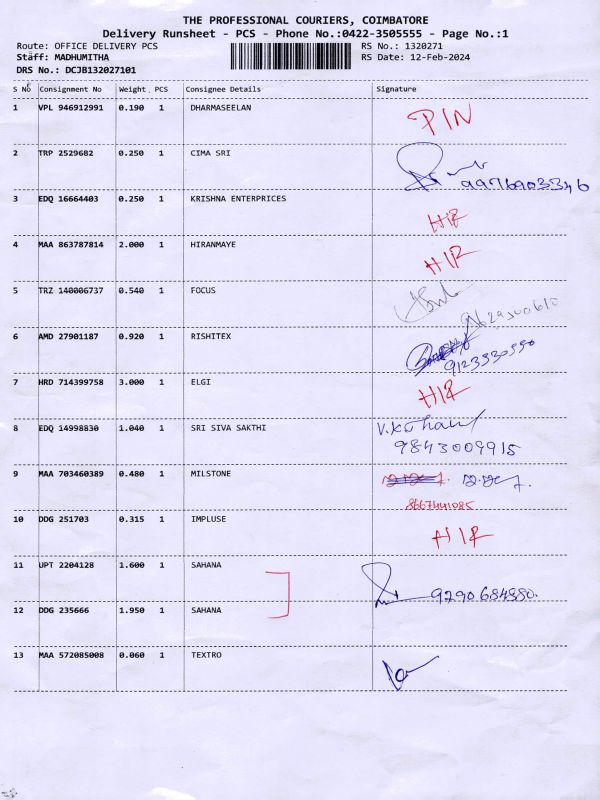 THE PROFESSIONAL COURIERS, COIMBATORE
Delivery Runsheet - PCS - Phone No.:0422-3505555 - Page No.:1
Route: OFFICE DELIVERY PCS RS No.: 1320271
Staff: MADHUMITHA RS Date: 12-Feb-2024
DRS No.: DCJB132027101
S No Consignment No Weight PCS Consignee Details Signature
1 VPL 946912991 0.190 1 DHARMASEELAN PIN
2 TRP 2529682 0.250 1 CIMA SRI
9976903346
3 EDQ 16664403 0.250 1 KRISHNA ENTERPRICES
HIR
4 MAA 863787814 2.000 1 HIRANMAYE HIR
5 TRZ 140006737 0.540 1 FOCUS
6 AMD 27901187 0.920 1 RISHITEX
9123330590
7 HRD 714399758 3.000 1 ELGI HIR
8 EDQ 14998830 1.040 1 SRI SIVA SAKTHI
9843009915
9 MAA 703460389 0.480 1 MILSTONE
8667441085
10 DDG 251703 0.315 1 IMPLUSE HIR
11 UPT 2204128 1.600 1 SAHANA
9290684880.
12 DDG 235666 1.950 1 SAHANA
13 MAA 572085008 0.060 1 TEXTRO